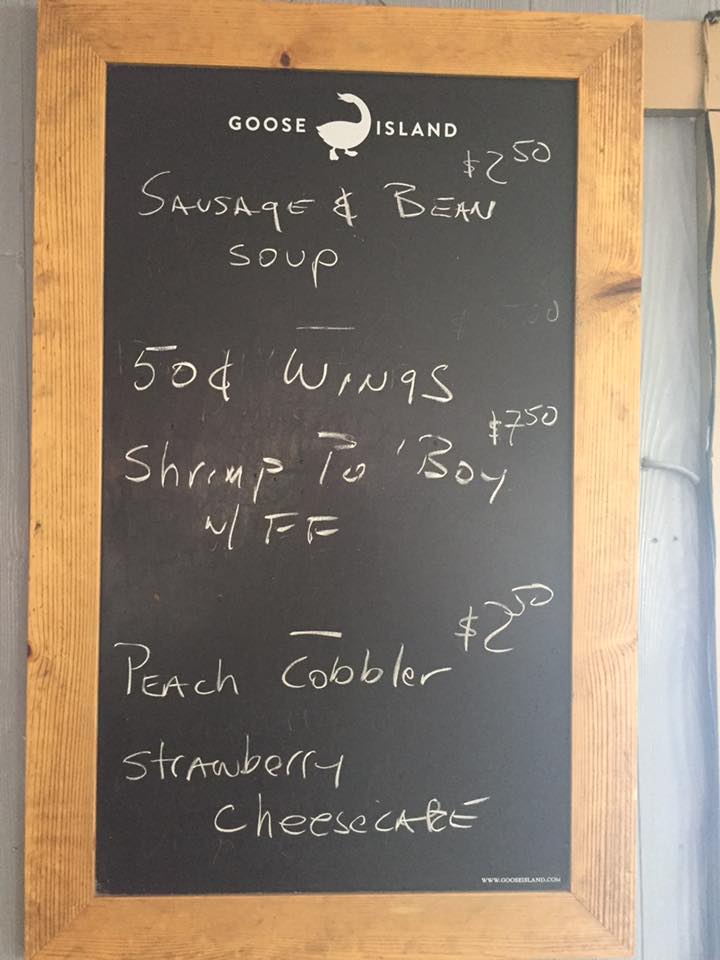 GOOSE ISLAND
$2.50
SAUSAGE & BEAN
SOUP
50¢ WINGS
$7.50
Shrimp Po' Boy
w/ FF
$2.50
PEACH Cobbler
Strawberry
CheeseCAKE
WWW.GOOSEISLAND.COM